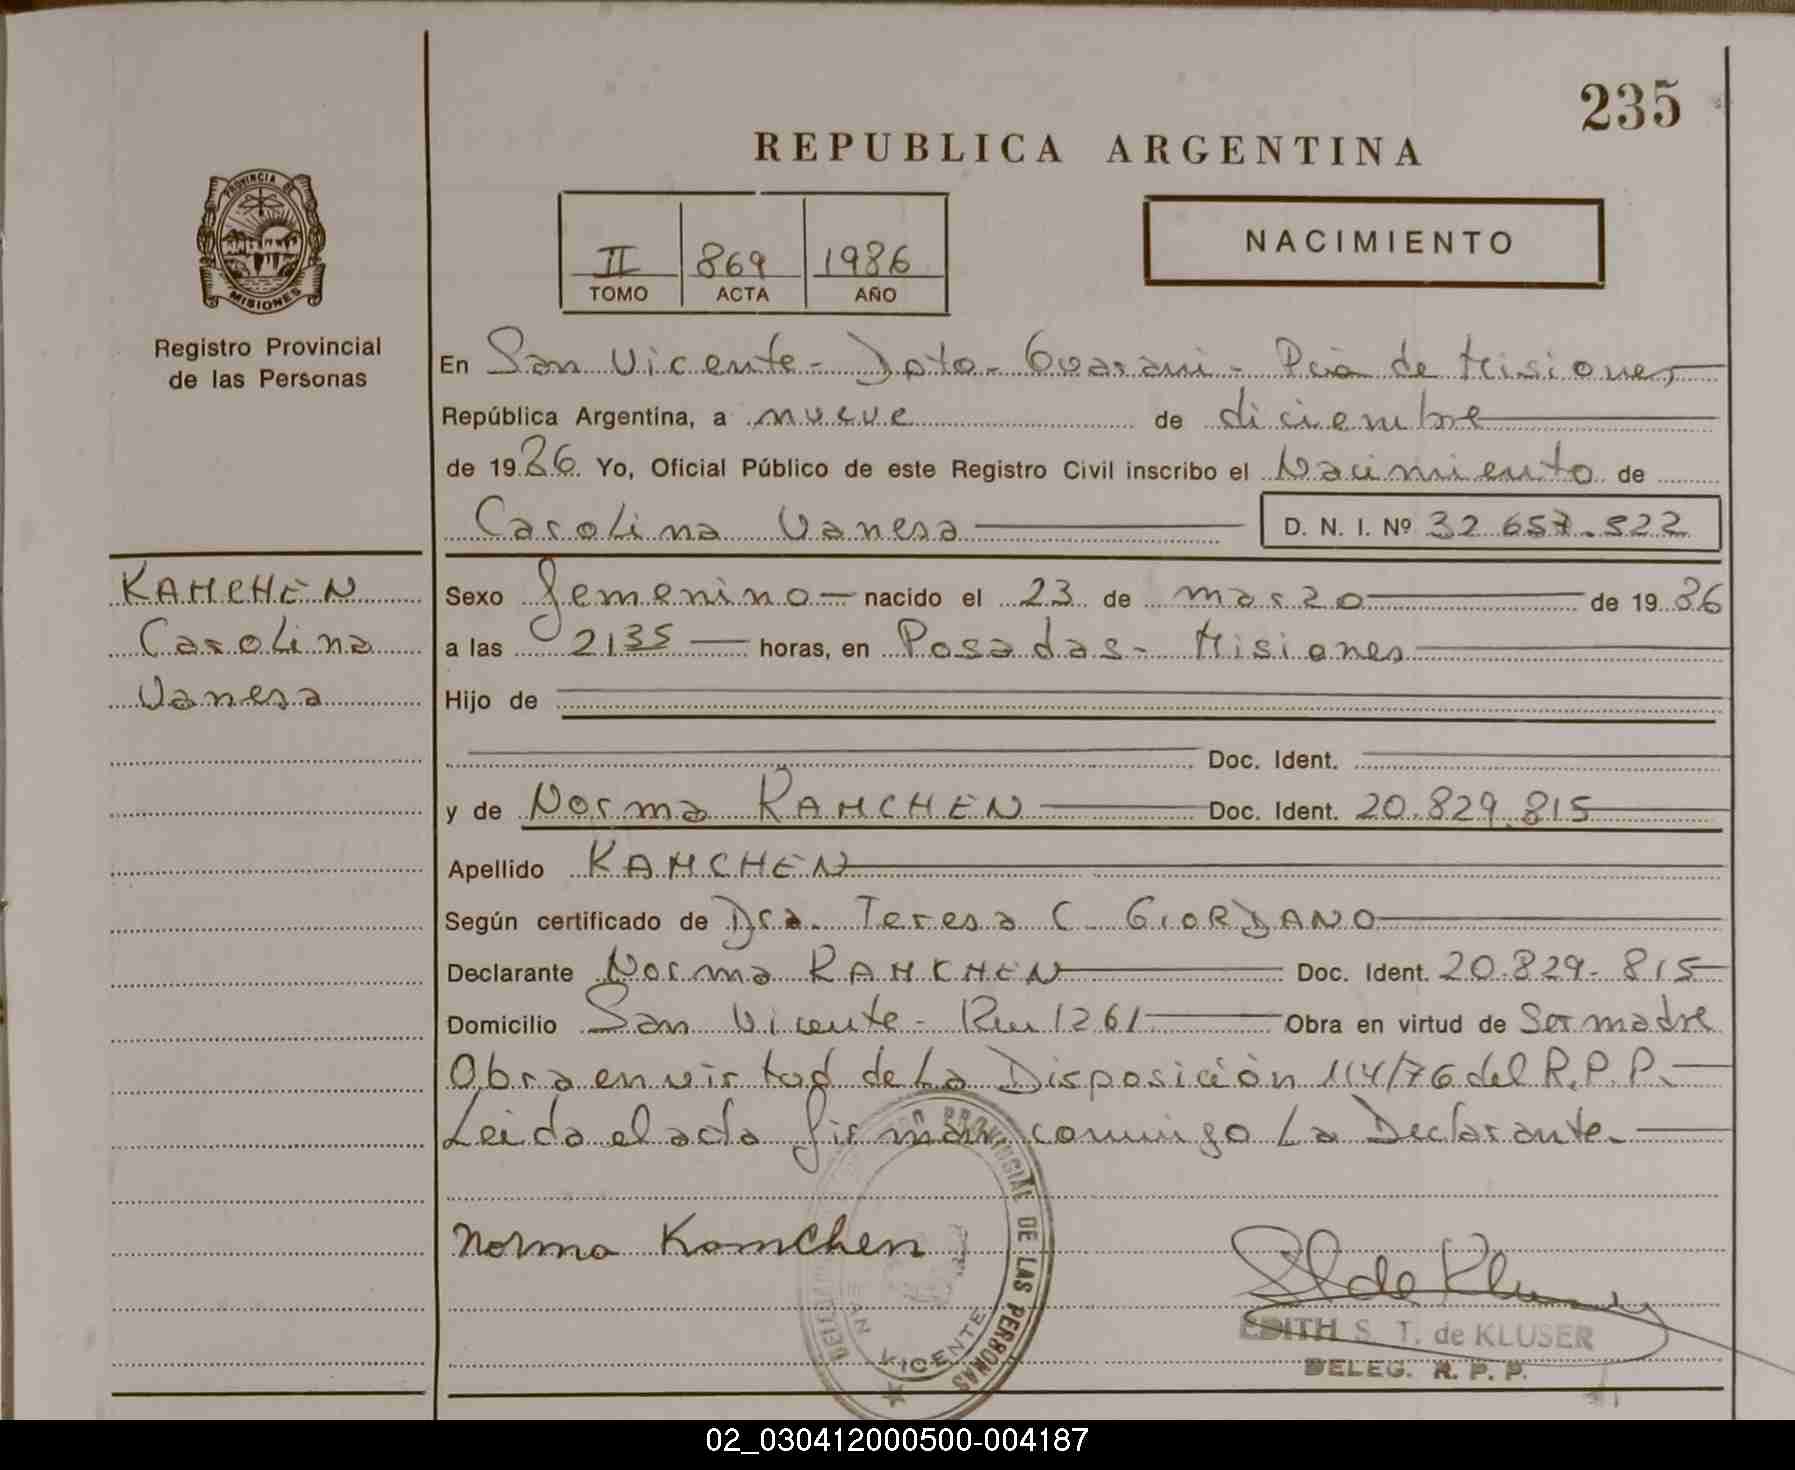 235
REPUBLICA ARGENTINA
PROVINCIA DE
MISIONES
Registro Provincial
de las Personas
II 869 1986
TOMO ACTA AÑO
NACIMIENTO
En San Vicente - Dpto - Guarani - Pcia de Misiones
República Argentina, a nueve de diciembre
de 1986 Yo, Oficial Público de este Registro Civil inscribo el Nacimiento de
Carolina Vanesa D. N. I. Nº 32.657.522
KAMCHEN
Carolina
Vanesa
Sexo femenino nacido el 23 de marzo de 1986
a las 2135 horas, en Posadas - Misiones
Hijo de
Doc. Ident.
y de Norma KAMCHEN Doc. Ident. 20.829.815
Apellido KAMCHEN
Según certificado de Dra. Teresa C GIORDANO
Declarante Norma KAMCHEN Doc. Ident. 20.829.815
Domicilio San Vicente - Km 1261 Obra en virtud de Ser madre
Obra en virtud de La Disposición 114/76 del R.P.P.
Leida el acta firman conmigo La Declarante.
Norma Kamchen
PROVINCIAL DE LAS PERSONAS
SAN VICENTE
EDITH S. T. de KLUSER
DELEG. R. P. P.
02_030412000500-004187